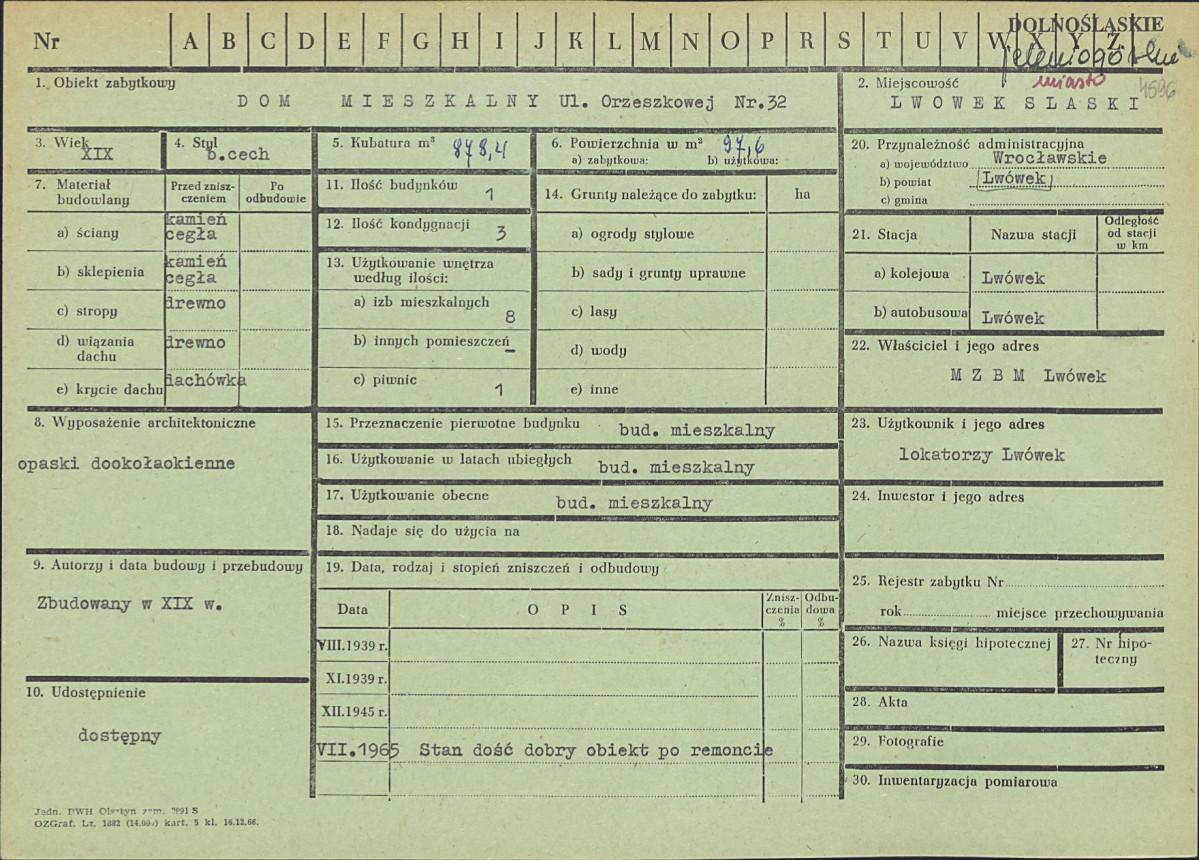 DOLNOŚLĄSKIE
Nr A B C D E F G H I J K L M N O P R S T U V W X Y Z
jeleniogórskie
miasto 4596
1. Obiekt zabytkowy
DOM MIESZKALNY Ul. Orzeszkowej Nr.32
2. Miejscowość
LWOWEK SLASKI
3. Wiek
XIX
4. Styl
b.cech
5. Kubatura m³ 878,4
6. Powierzchnia w m² 97,6
a) zabytkowa: b) użytkowa:
20. Przynależność administracyjna
a) województwo Wrocławskie
b) powiat Lwówek
c) gmina
7. Materiał budowlany
Przed zniszczeniem
Po odbudowie
a) ściany kamień cegła
b) sklepienia kamień cegła
c) stropy drewno
d) wiązania dachu drewno
e) krycie dachu dachówka
11. Ilość budynków 1
12. Ilość kondygnacji 3
13. Użytkowanie wnętrza według ilości:
a) izb mieszkalnych 8
b) innych pomieszczeń –
c) piwnic 1
14. Grunty należące do zabytku: ha
a) ogrody stylowe
b) sady i grunty uprawne
c) lasy
d) wody
e) inne
21. Stacja Nazwa stacji Odległość od stacji w km
a) kolejowa Lwówek
b) autobusowa Lwówek
22. Właściciel i jego adres
M Z B M Lwówek
8. Wyposażenie architektoniczne
opaski dookołaokienne
15. Przeznaczenie pierwotne budynku bud. mieszkalny
16. Użytkowanie w latach ubiegłych bud. mieszkalny
17. Użytkowanie obecne bud. mieszkalny
18. Nadaje się do użycia na
23. Użytkownik i jego adres
lokatorzy Lwówek
24. Inwestor i jego adres
9. Autorzy i data budowy i przebudowy
Zbudowany w XIX w.
19. Data, rodzaj i stopień zniszczeń i odbudowy
Data OPIS Zniszczenia % Odbudowa %
VIII.1939 r.
XI.1939 r.
XII.1945 r.
VII.1965 Stan dość dobry obiekt po remoncie
10. Udostępnienie
dostępny
25. Rejestr zabytku Nr
rok miejsce przechowywania
26. Nazwa księgi hipotecznej
27. Nr hipoteczny
28. Akta
29. Fotografie
30. Inwentaryzacja pomiarowa
Jedn. PWH Olsztyn zam. S
OZGraf. Lz. 1882 kart. 5 kl. 16.12.66.